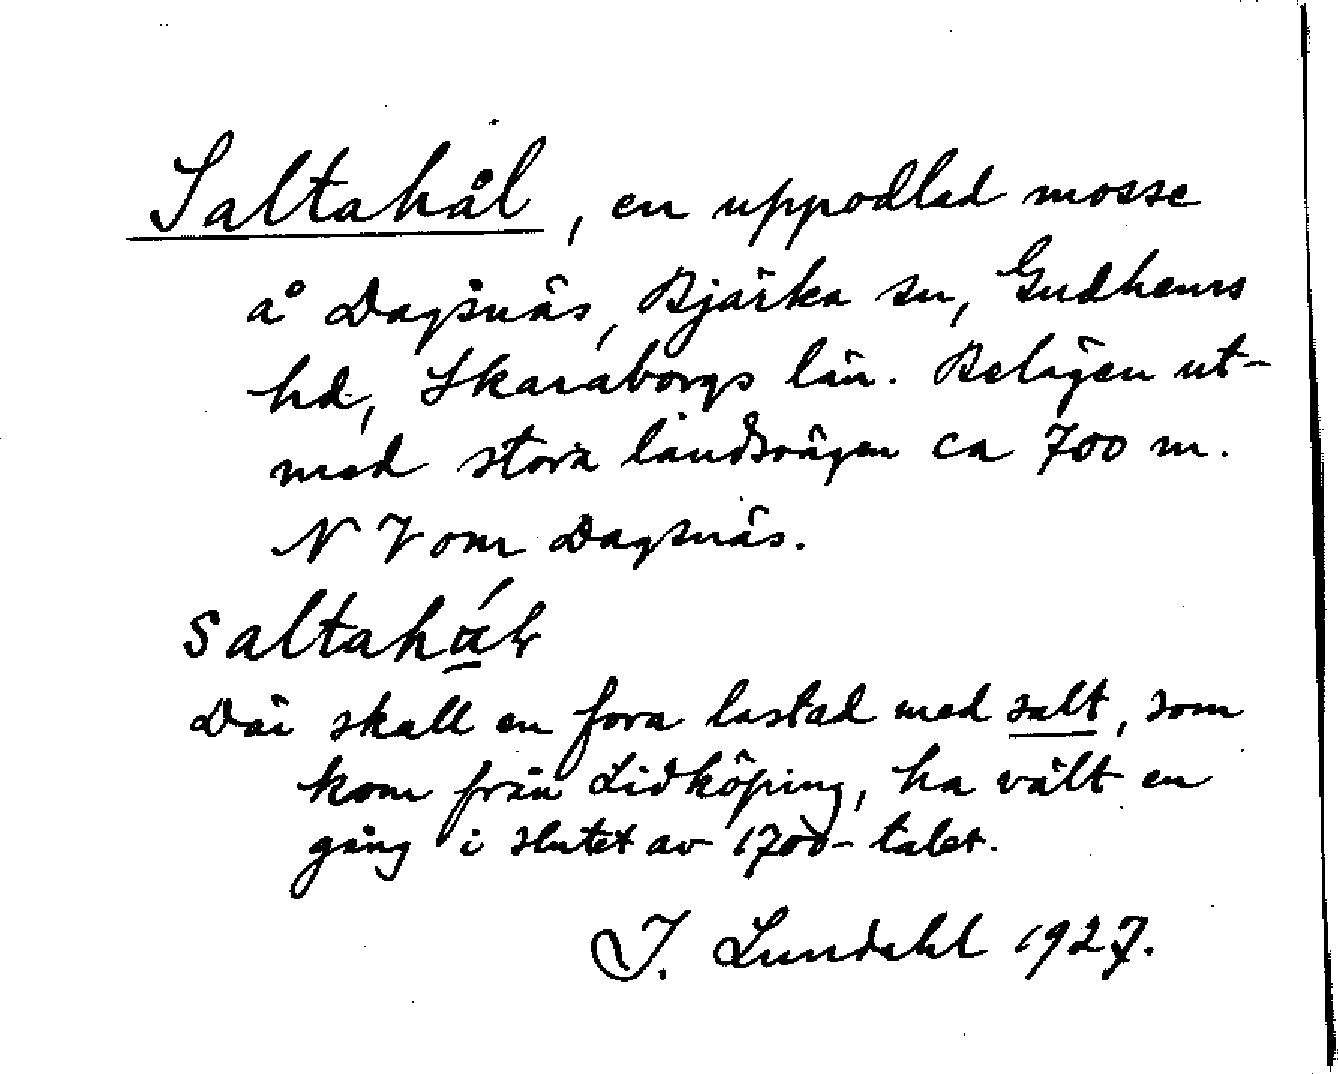 Saltahål, en uppodlad mosse
å Dagsnäs, Bjärka sn, Gudhems
hd, Skaraborgs län. Belägen ut-
med stora landsvägen ca 700 m.
NV om Dagsnäs.
Där skall en fora lastad med salt, som
kom från Lidköping, ha vält en
gång i slutet av 1700-talet.
I. Lundahl 1927.